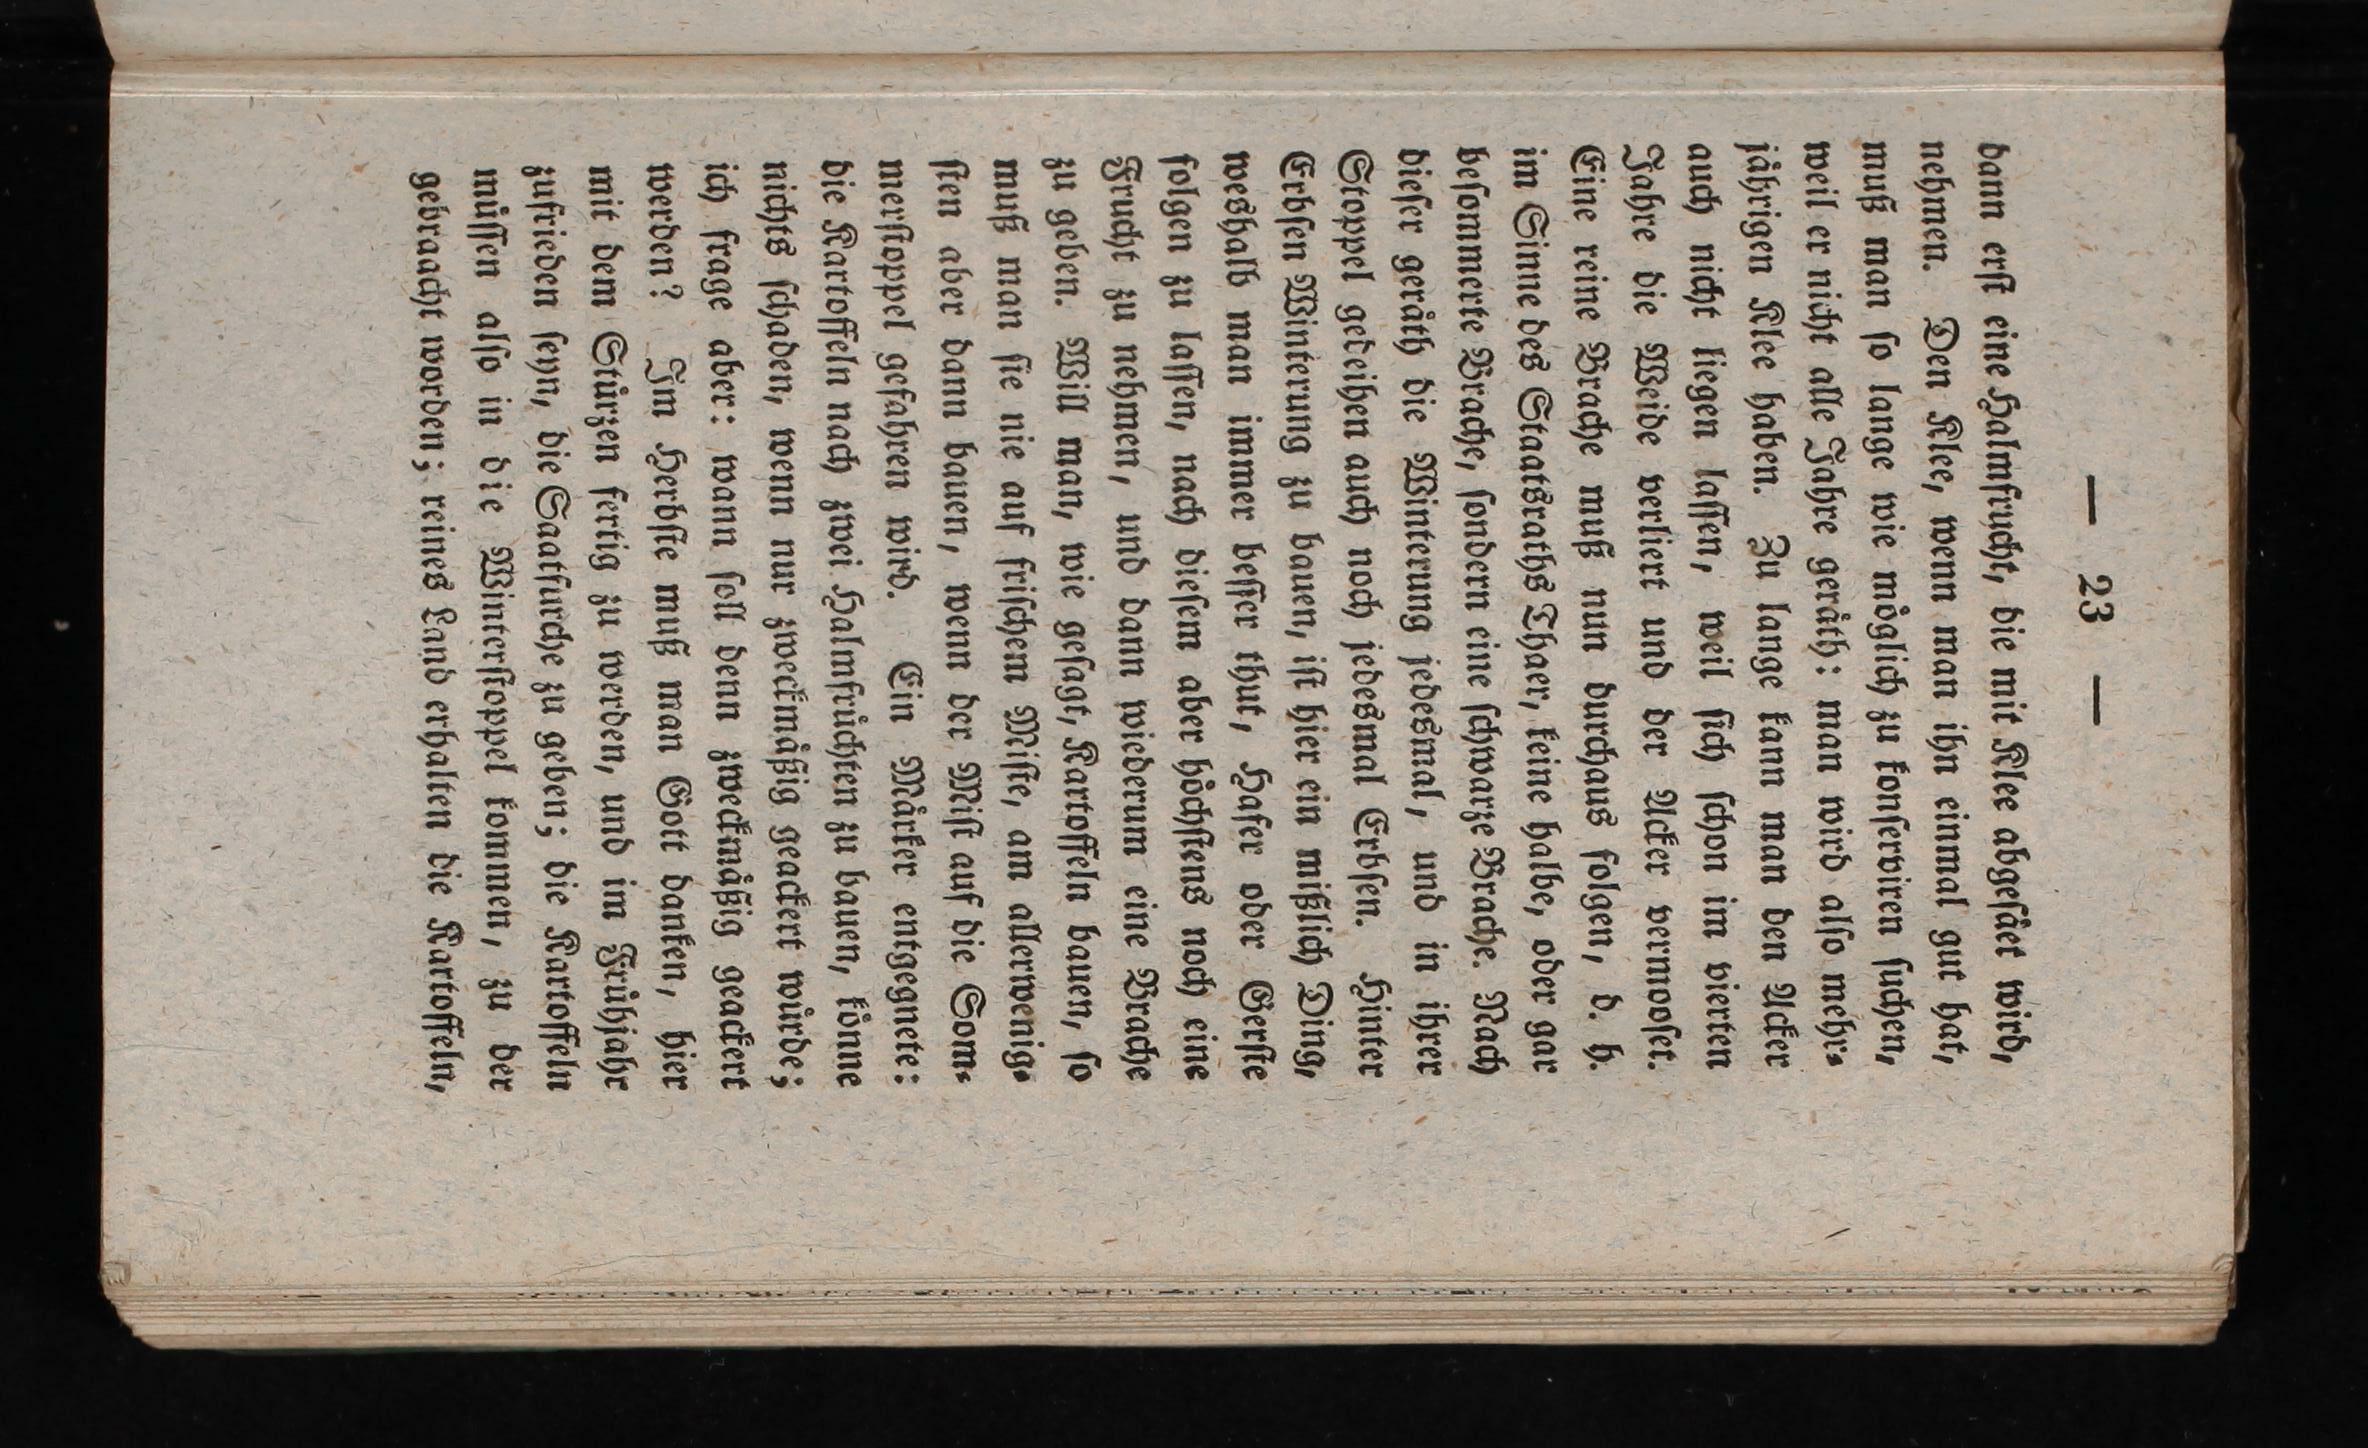 — 23 —
dann erſt eine Halmfrucht, die mit Klee abgeſäet wird,
nehmen. Den Klee, wenn man ihn einmal gut hat,
muß man ſo lange wie möglich zu konſerviren ſuchen,
weil er nicht alle Jahre geräth: man wird alſo mehr-
jährigen Klee haben. Zu lange kann man den Acker
auch nicht liegen laſſen, weil ſich ſchon im vierten
Jahre die Weide verliert und der Acker vermooſet.
Eine reine Brache muß nun durchaus folgen, d. h.
im Sinne des Staatsraths Thaer, keine halbe, oder gar
beſommerte Brache, ſondern eine ſchwarze Brache. Nach
dieſer geräth die Winterung jedesmal, und in ihrer
Stoppel gedeihen auch noch jedesmal Erbſen. Hinter
Erbſen Winterung zu bauen, iſt hier ein mißlich Ding,
weshalb man immer beſſer thut, Hafer oder Gerſte
folgen zu laſſen, nach dieſem aber höchſtens noch eine
Frucht zu nehmen, und dann wiederum eine Brache
zu geben. Will man, wie geſagt, Kartoffeln bauen, ſo
muß man ſie nie auf friſchem Miſte, am allerwenig-
ſten aber dann bauen, wenn der Miſt auf die Som-
merſtoppel gefahren wird. Ein Märker entgegnete:
die Kartoffeln nach zwei Halmfrüchten zu bauen, könne
nichts ſchaden, wenn nur zweckmäßig geackert würde;
ich frage aber: wann ſoll denn zweckmäßig geackert
werden? Im Herbſte muß man Gott danken, hier
mit dem Stürzen fertig zu werden, und im Frühjahr
zufrieden ſeyn, die Saatfurche zu geben; die Kartoffeln
müſſen alſo in die Winterſtoppel kommen, zu der
gebraacht worden; reines Land erhalten die Kartoffeln,